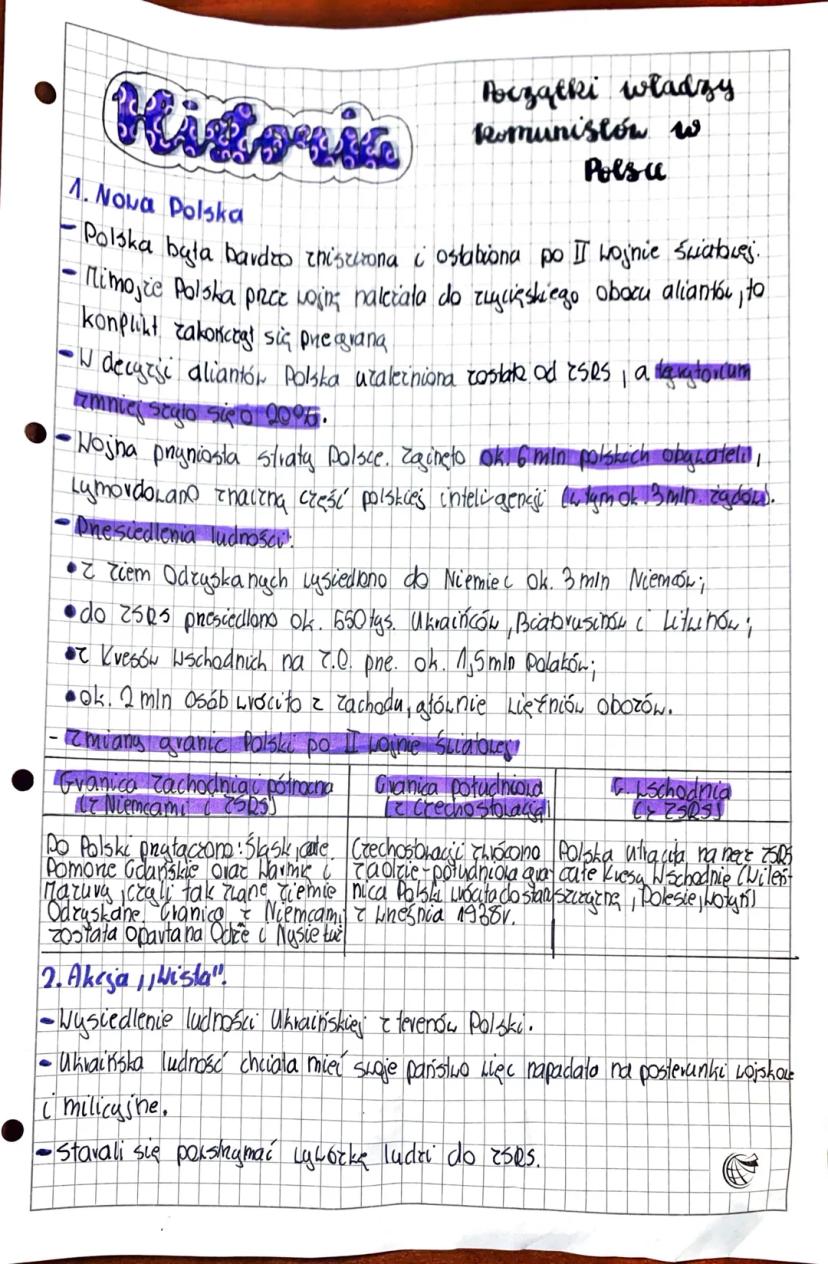 Historia
Początki władzy
komunistów w
Polsce
1. Nowa Polska
- Polska była bardzo zniszczona i osłabiona po II wojnie światowej.
- Mimo że Polska przez wojnę należała do zwycięskiego obozu aliantów, to
konflikt zakończył się przegraną
- W decyzji aliantów Polska uzależniona została od ZSRS, a terytorium
zmniejszyło się o 20%.
- Wojna przyniosła straty Polsce. Zginęło ok. 6 mln polskich obywateli,
wymordowano znaczną część polskiej inteligencji (w tym ok. 3 mln. żydów).
- Przesiedlenia ludności:
• z ziem Odzyskanych wysiedlono do Niemiec ok. 3 mln Niemców;
• do ZSRS przesiedlono ok. 550 tys. Ukraińców, Białorusinów i Litwinów;
• z Kresów Wschodnich na Z.O. prze. ok. 1,5 mln Polaków;
• ok. 2 mln osób wróciło z zachodu, głównie więźniów obozów.
- Zmiany granic Polski po II wojnie światowej
Granica zachodnia i północna
(z Niemcami i ZSRS)
Do Polski przyłączono: Śląsk, całe
Pomorze Gdańskie oraz Warmię i
Mazury, czyli tak zwane ziemie
Odzyskane. Granica z Niemcami
została oparta na Odrze i Nysie Łuż
Granica południowa
(z Czechosłowacją)
Czechosłowacji zwrócono
zaolzie - południowa gra
nica Polski wróciła do stanu
z września 1938r.
G. wschodnia
(z ZSRS)
Polska utraciła na rzecz ZSRS
całe Kresy Wschodnie (Wileń-
szczyznę, Polesie, Wołyń)
2. Akcja ,,Wisła".
- Wysiedlenie ludności Ukraińskiej z terenów Polski.
- Ukraińska ludność chciała mieć swoje państwo więc napadała na posterunki wojskowe
i milicyjne.
- Starali się powstrzymać wywózkę ludzi do ZSRS.